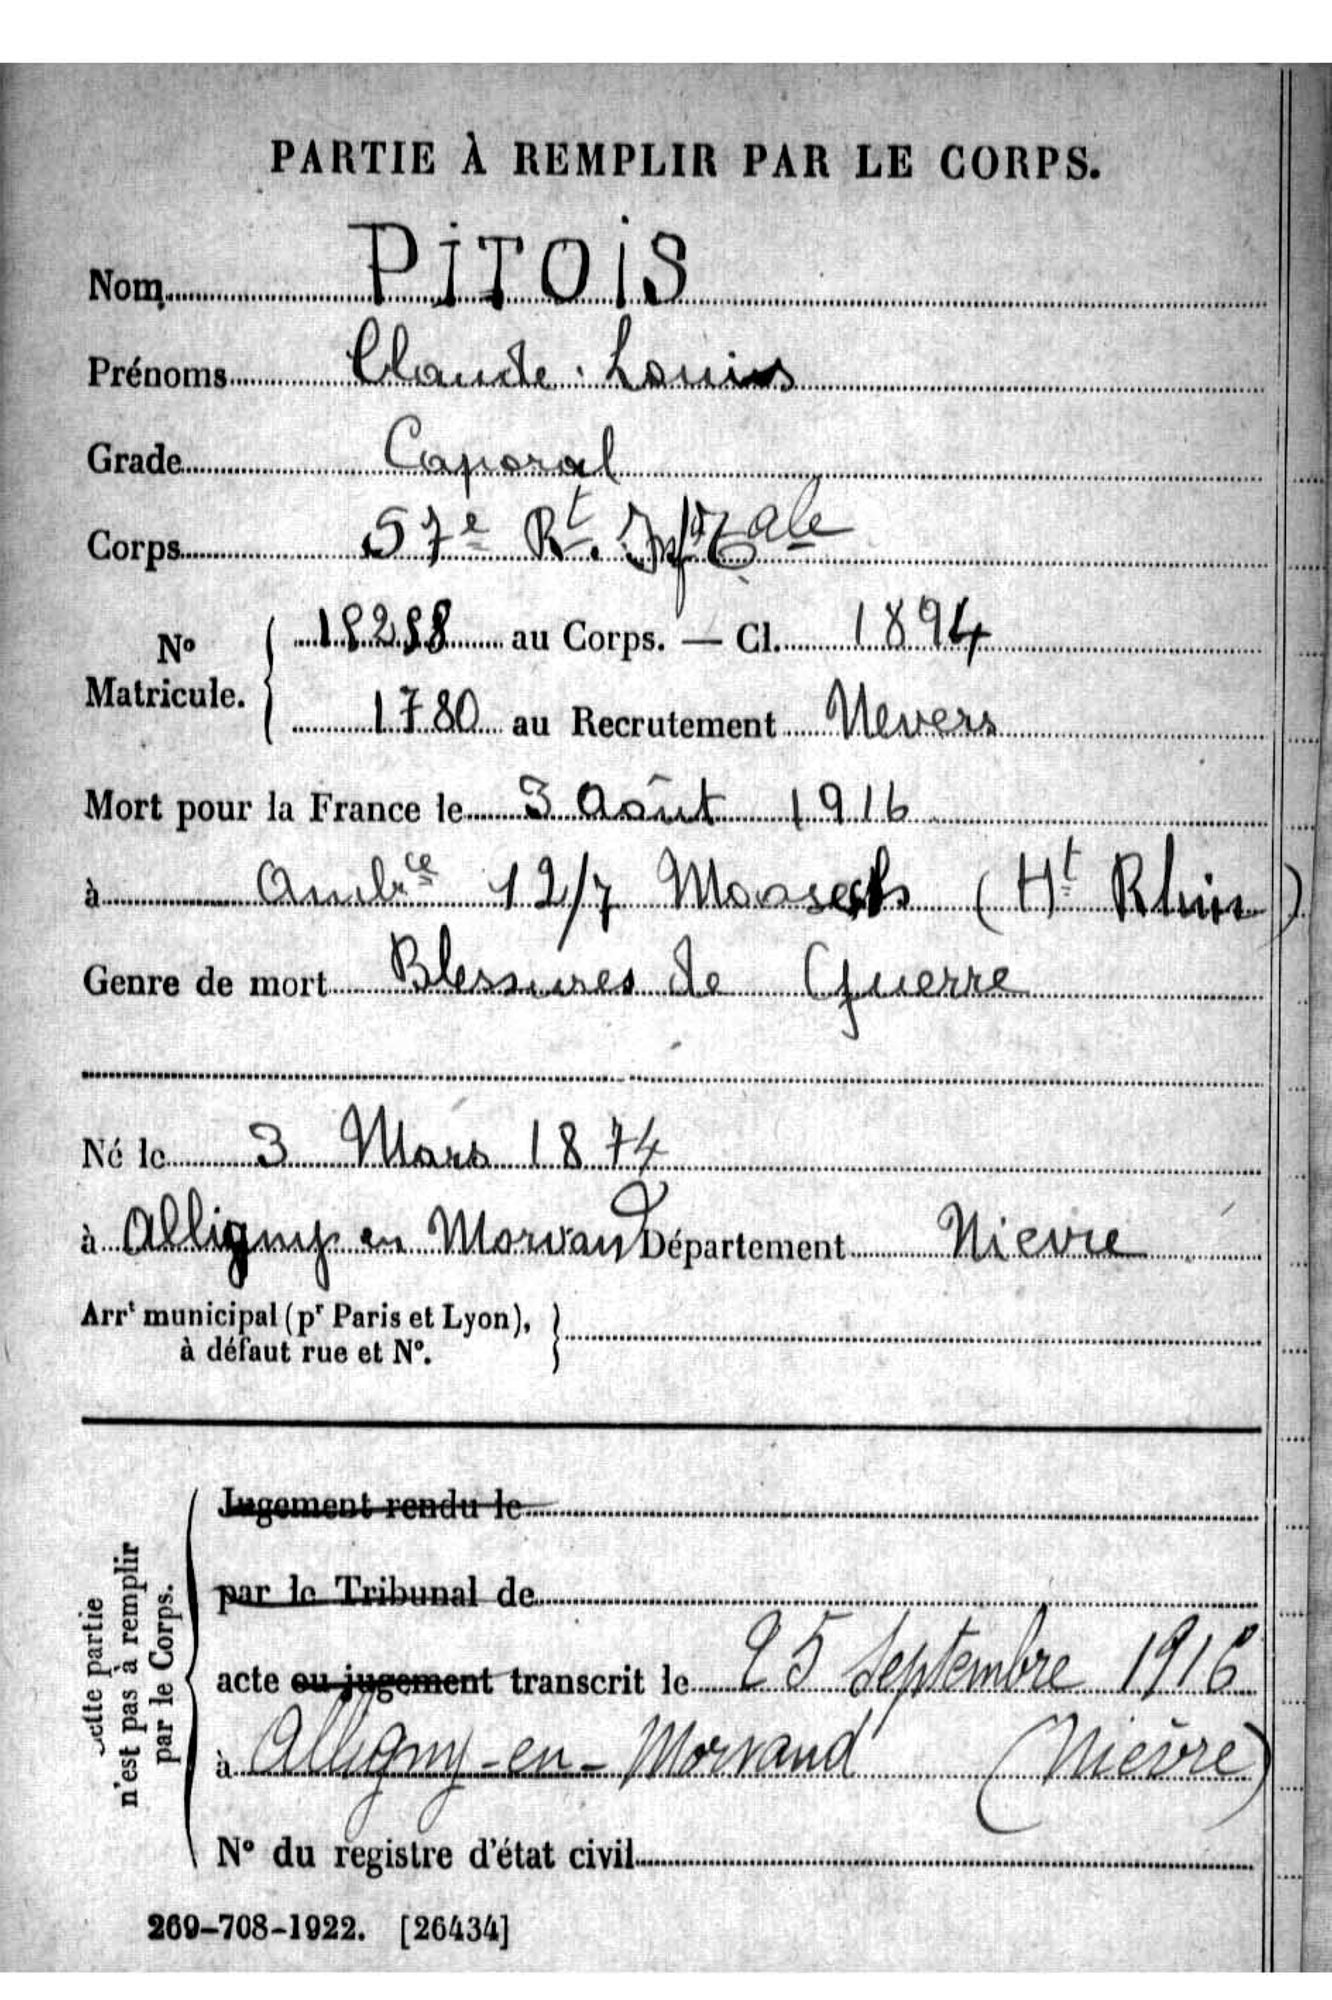 PARTIE À REMPLIR PAR LE CORPS.
Nom PITOIS
Prénoms Claude Louis
Grade Caporal
Corps 57e Rt. Inf Tale
No Matricule. 18288 au Corps. — Cl. 1894
1780 au Recrutement Nevers
Mort pour la France le 3 Août 1916
à Ambce 12/7 Moosch (Ht Rhin)
Genre de mort Blessures de Guerre
Né le 3 Mars 1874
à Alligny en Morvand Département Nievre
Arrt municipal (pr Paris et Lyon),
à défaut rue et No.
Jugement rendu le
par le Tribunal de
acte ou jugement transcrit le 25 Septembre 1916
à Alligny-en-Morvand (Nièvre)
No du registre d'état civil
Cette partie
n'est pas à remplir
par le Corps.
269-708-1922. [26434]